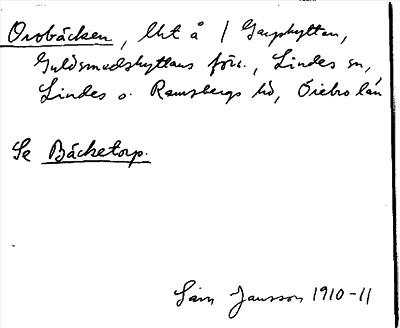 Orobäcken, Utt å / Garphyttan,
Guldsmedshyttans förs., Lindes sn,
Lindes o. Ramsbergs hd, Örebro län
Se Bäcketorp.
Sam Jansson 1910-11